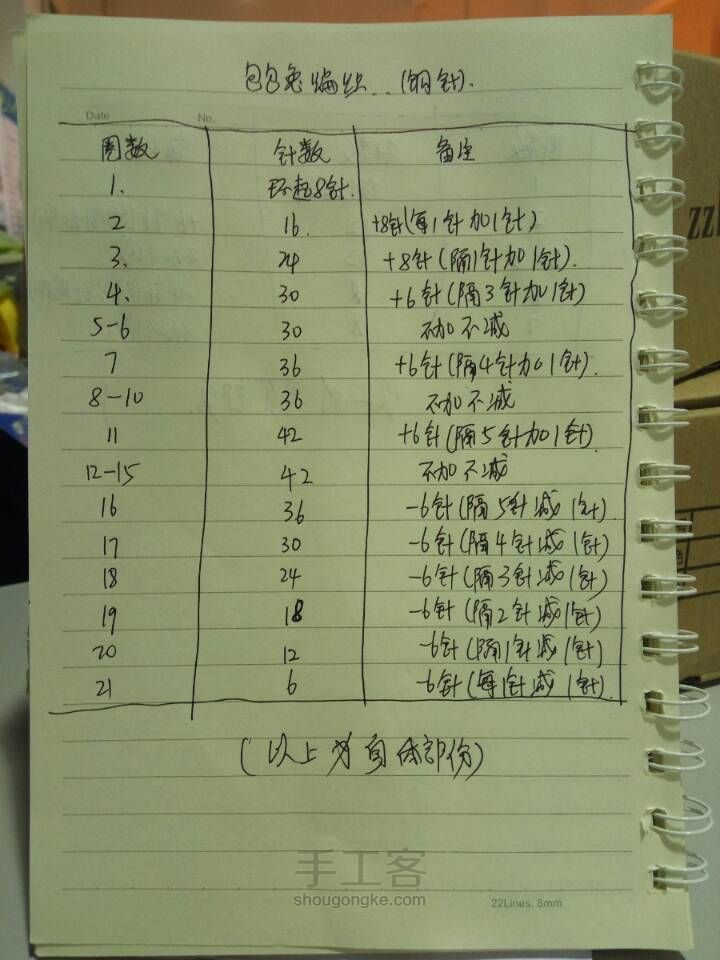 包包兔编织..(钩针).
Date No.
周数 针数 备注
1. 环起8针.
2 16. +8针(每1针加1针)
3. 24 +8针(隔1针加1针).
4. 30 +6针(隔3针加1针)
5-6 30 不加不减
7 36 +6针(隔4针加1针).
8-10 36 不加不减
11 42 +6针(隔5针加1针).
12-15 42 不加不减
16 36 -6针(隔5针减1针).
17 30 -6针(隔4针减1针)
18 24 -6针(隔3针减1针)
19 18 -6针(隔2针减1针)
20 12 -6针(隔1针减1针)
21 6 -6针(每1针减1针).
(以上为身体部份)
手工客
shougongke.com
22Lines. 8mm